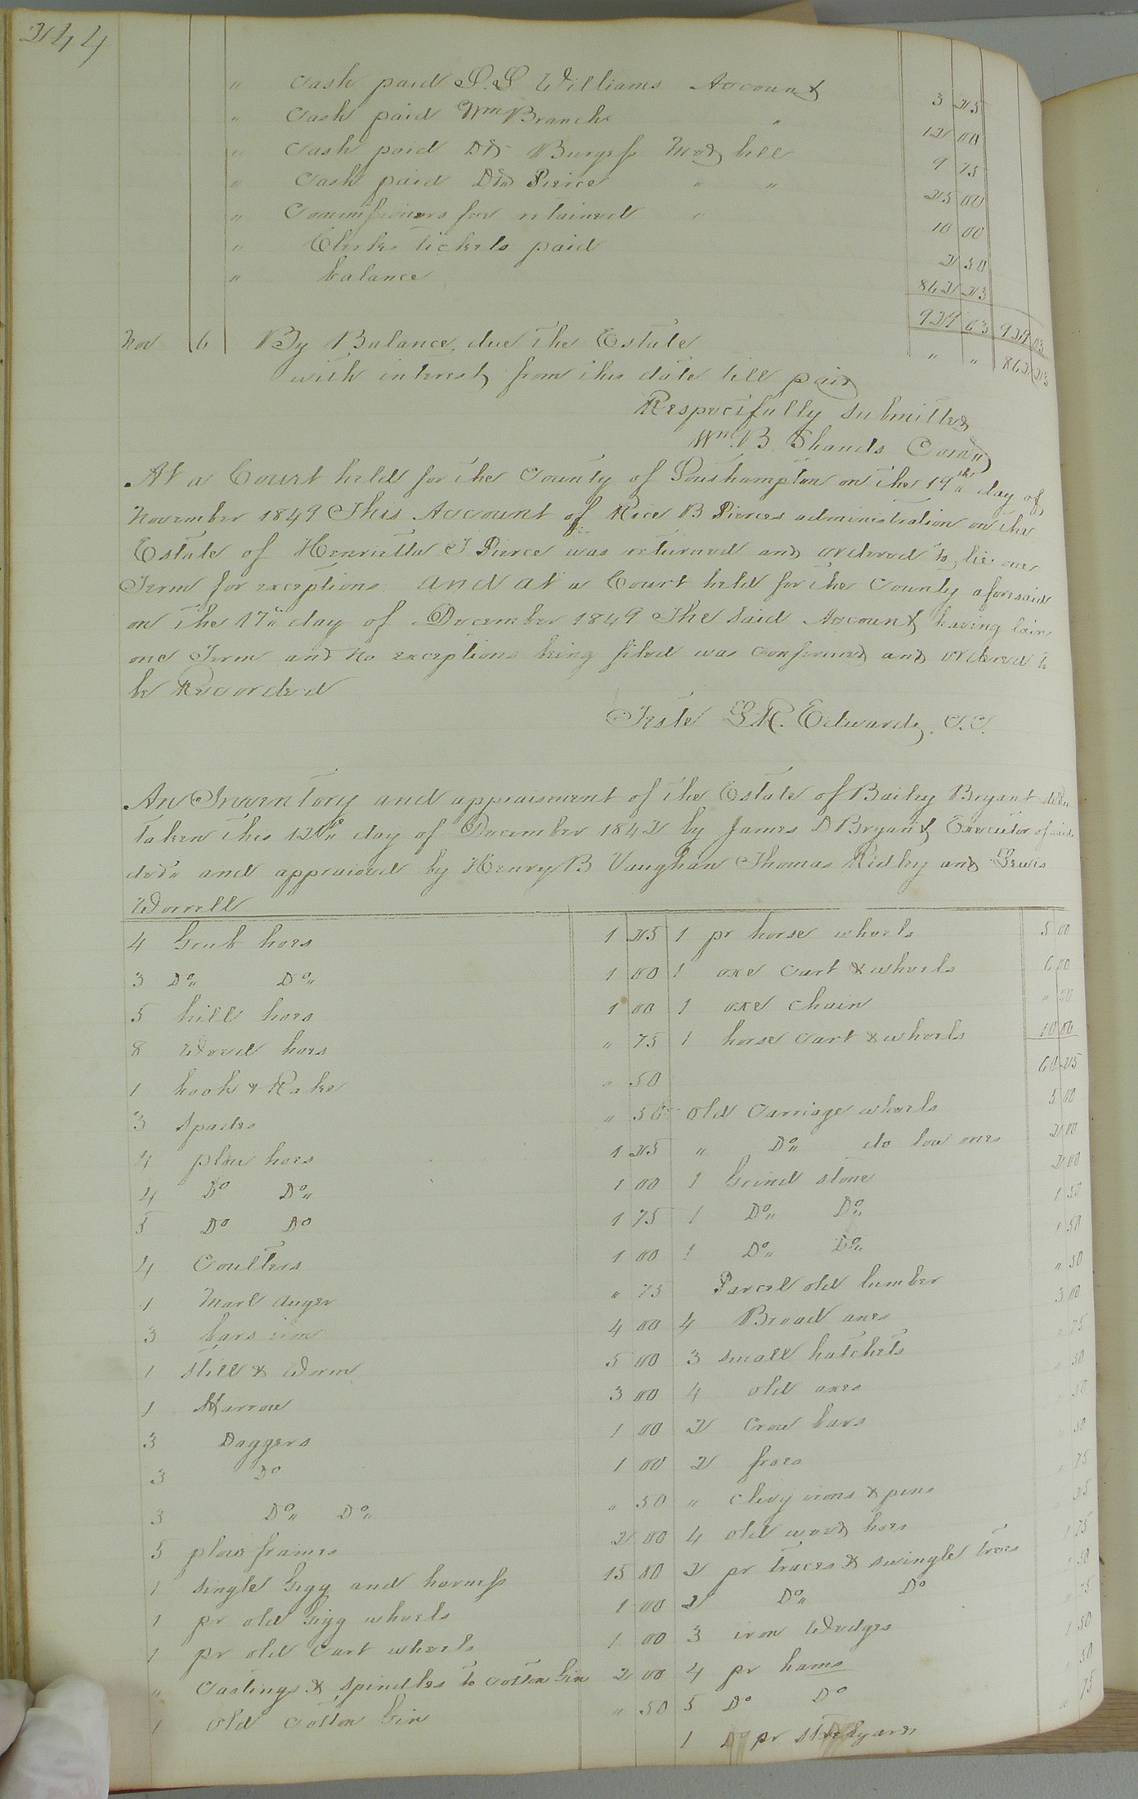 244
" Cash paid S. S. Williams Account 3 25
" Cash paid Wm Branch " 12 00
" Cash paid Dr Burgess Med bill 9 75
" Cash paid Dr Pierce " " 25 00
" Commissioners fee retained " 10 00
" Clerks tickets paid 2 50
" balance 862 23
924 63 924 63
Nov 6 By Balance due the Estate " " 862 23
with interest from this date till paid
Respectfully submitted
Wm B. Shands Com
At a Court held for the County of Southampton on the 19th day of
November 1849 This Account of Rice B Pierces administration on the
Estate of Henrietta J Pierce was returned and ordered to lie one
Term for exceptions and at a Court held for the County aforesaid
on the 17th day of December 1849 The said Account having lain
one Term and no exceptions being filed was confirmed and ordered to
be Recorded
Teste L. R. Edwards, C.C.
An Inventory and appraisment of the Estate of Bailey Bryant decd
taken this 12th day of December 1842 by James D Bryant Executor of said
decd and appraised by Henry B Vaughan Thomas Ridley and Lewis
Worrell
4 Grub hoes 1 25 1 pr horse wheels 5 00
3 Do " Do " 1 00 1 oxe cart & wheels 6 00
5 hill hoes 1 00 1 oxe chain " 50
8 Weed hoes " 75 1 horse cart & wheels 10 00
1 hook & Rake " 50
3 Spades " 50 old Carriage wheels 5 00
4 plow hoes 1 25 " Do " do low ones 2 00
4 Do Do " 1 00 1 Grind stone 2 00
5 Do Do 1 75 1 Do " Do " 1 50
4 Coulters 1 00 1 Do " Do " 1 50
1 Marl Auger " 75 Parcel old lumber " 50
3 bars iron 4 00 4 Broad axes 3 00
1 still & worm 5 00 3 small hatchets " 75
1 Harrow 3 00 4 old axes " 50
3 Daggers 1 00 2 Crow bars " 50
3 Do 1 00 2 froes " 50
3 Do " Do " " 50 " Clevy irons & pins " 75
5 plow frames 2 00 4 old weed hoes " 25
1 single Gigg and harness 15 00 2 pr traces & swingle trees 1 75
1 pr old Gigg wheels 1 00 2 Do " Do 1 50
1 pr old Cart wheels 1 00 3 iron Wedges " 75
" Castings & spindles to cotton Gin 2 00 4 pr hams 1 50
1 old Cotton Gin " 50 5 Do Do " 50
1 pr Stedyards " 75